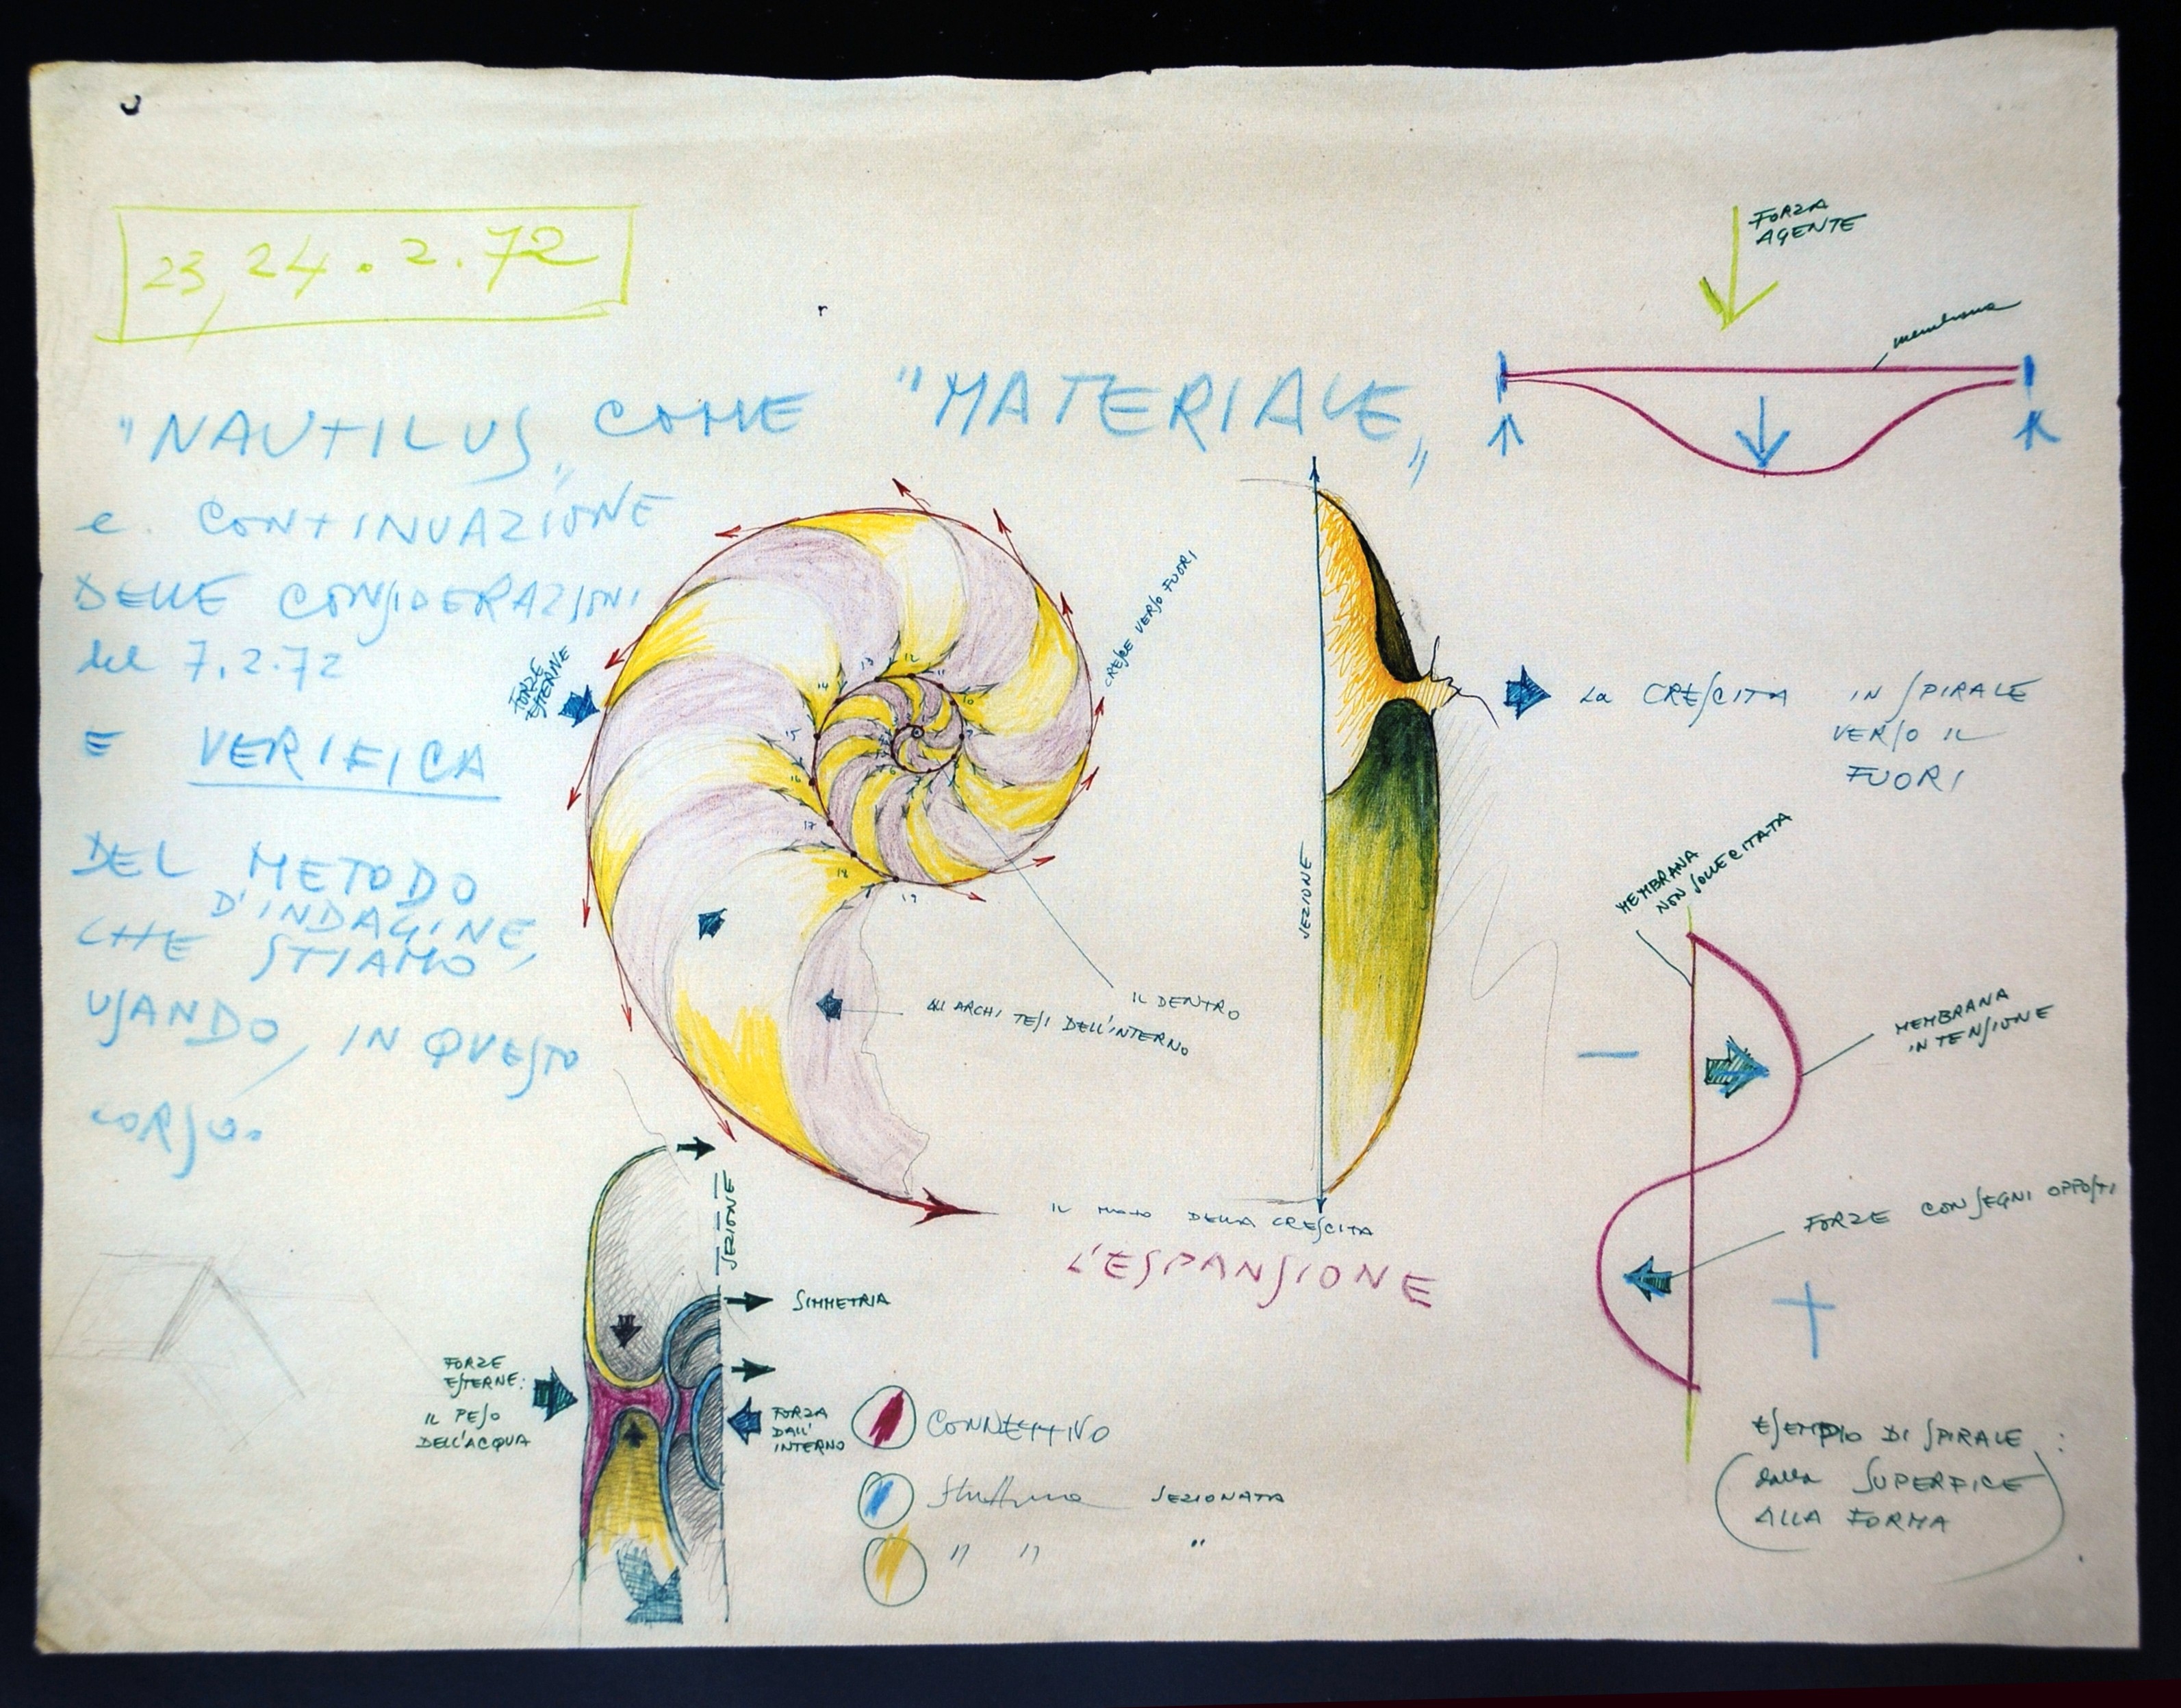 23, 24.2.72
"NAUTILUS" COME "MATERIALE"
e CONTINUAZIONE
DELLE CONSIDERAZIONI
del 7.2.72
E VERIFICA
DEL METODO
D'INDAGINE,
CHE STIAMO
USANDO, IN QUESTO
CORSO.
FORZA
AGENTE
membrana
FORZE
ESTERNE
CRESCE VERSO FUORI
11
12
13
14
15
16
17
18
19
IL DENTRO
GLI ARCHI TESI DELL'INTERNO
SEZIONE
La CRESCITA IN SPIRALE
VERSO IL
FUORI
IL MOTO DELLA CRESCITA
L'ESPANSIONE
MEMBRANA
NON SOLLECITATA
MEMBRANA
IN TENSIONE
−
FORZE CON SEGNI OPPOSTI
+
ESEMPIO DI SPIRALE :
(dalla SUPERFICE
ALLA FORMA)
SEZIONE
SIMMETRIA
FORZE
ESTERNE:
IL PESO
DELL'ACQUA
FORZA
DALL'
INTERNO
CONNETTIVO
Struttura SEZIONATA
" " "